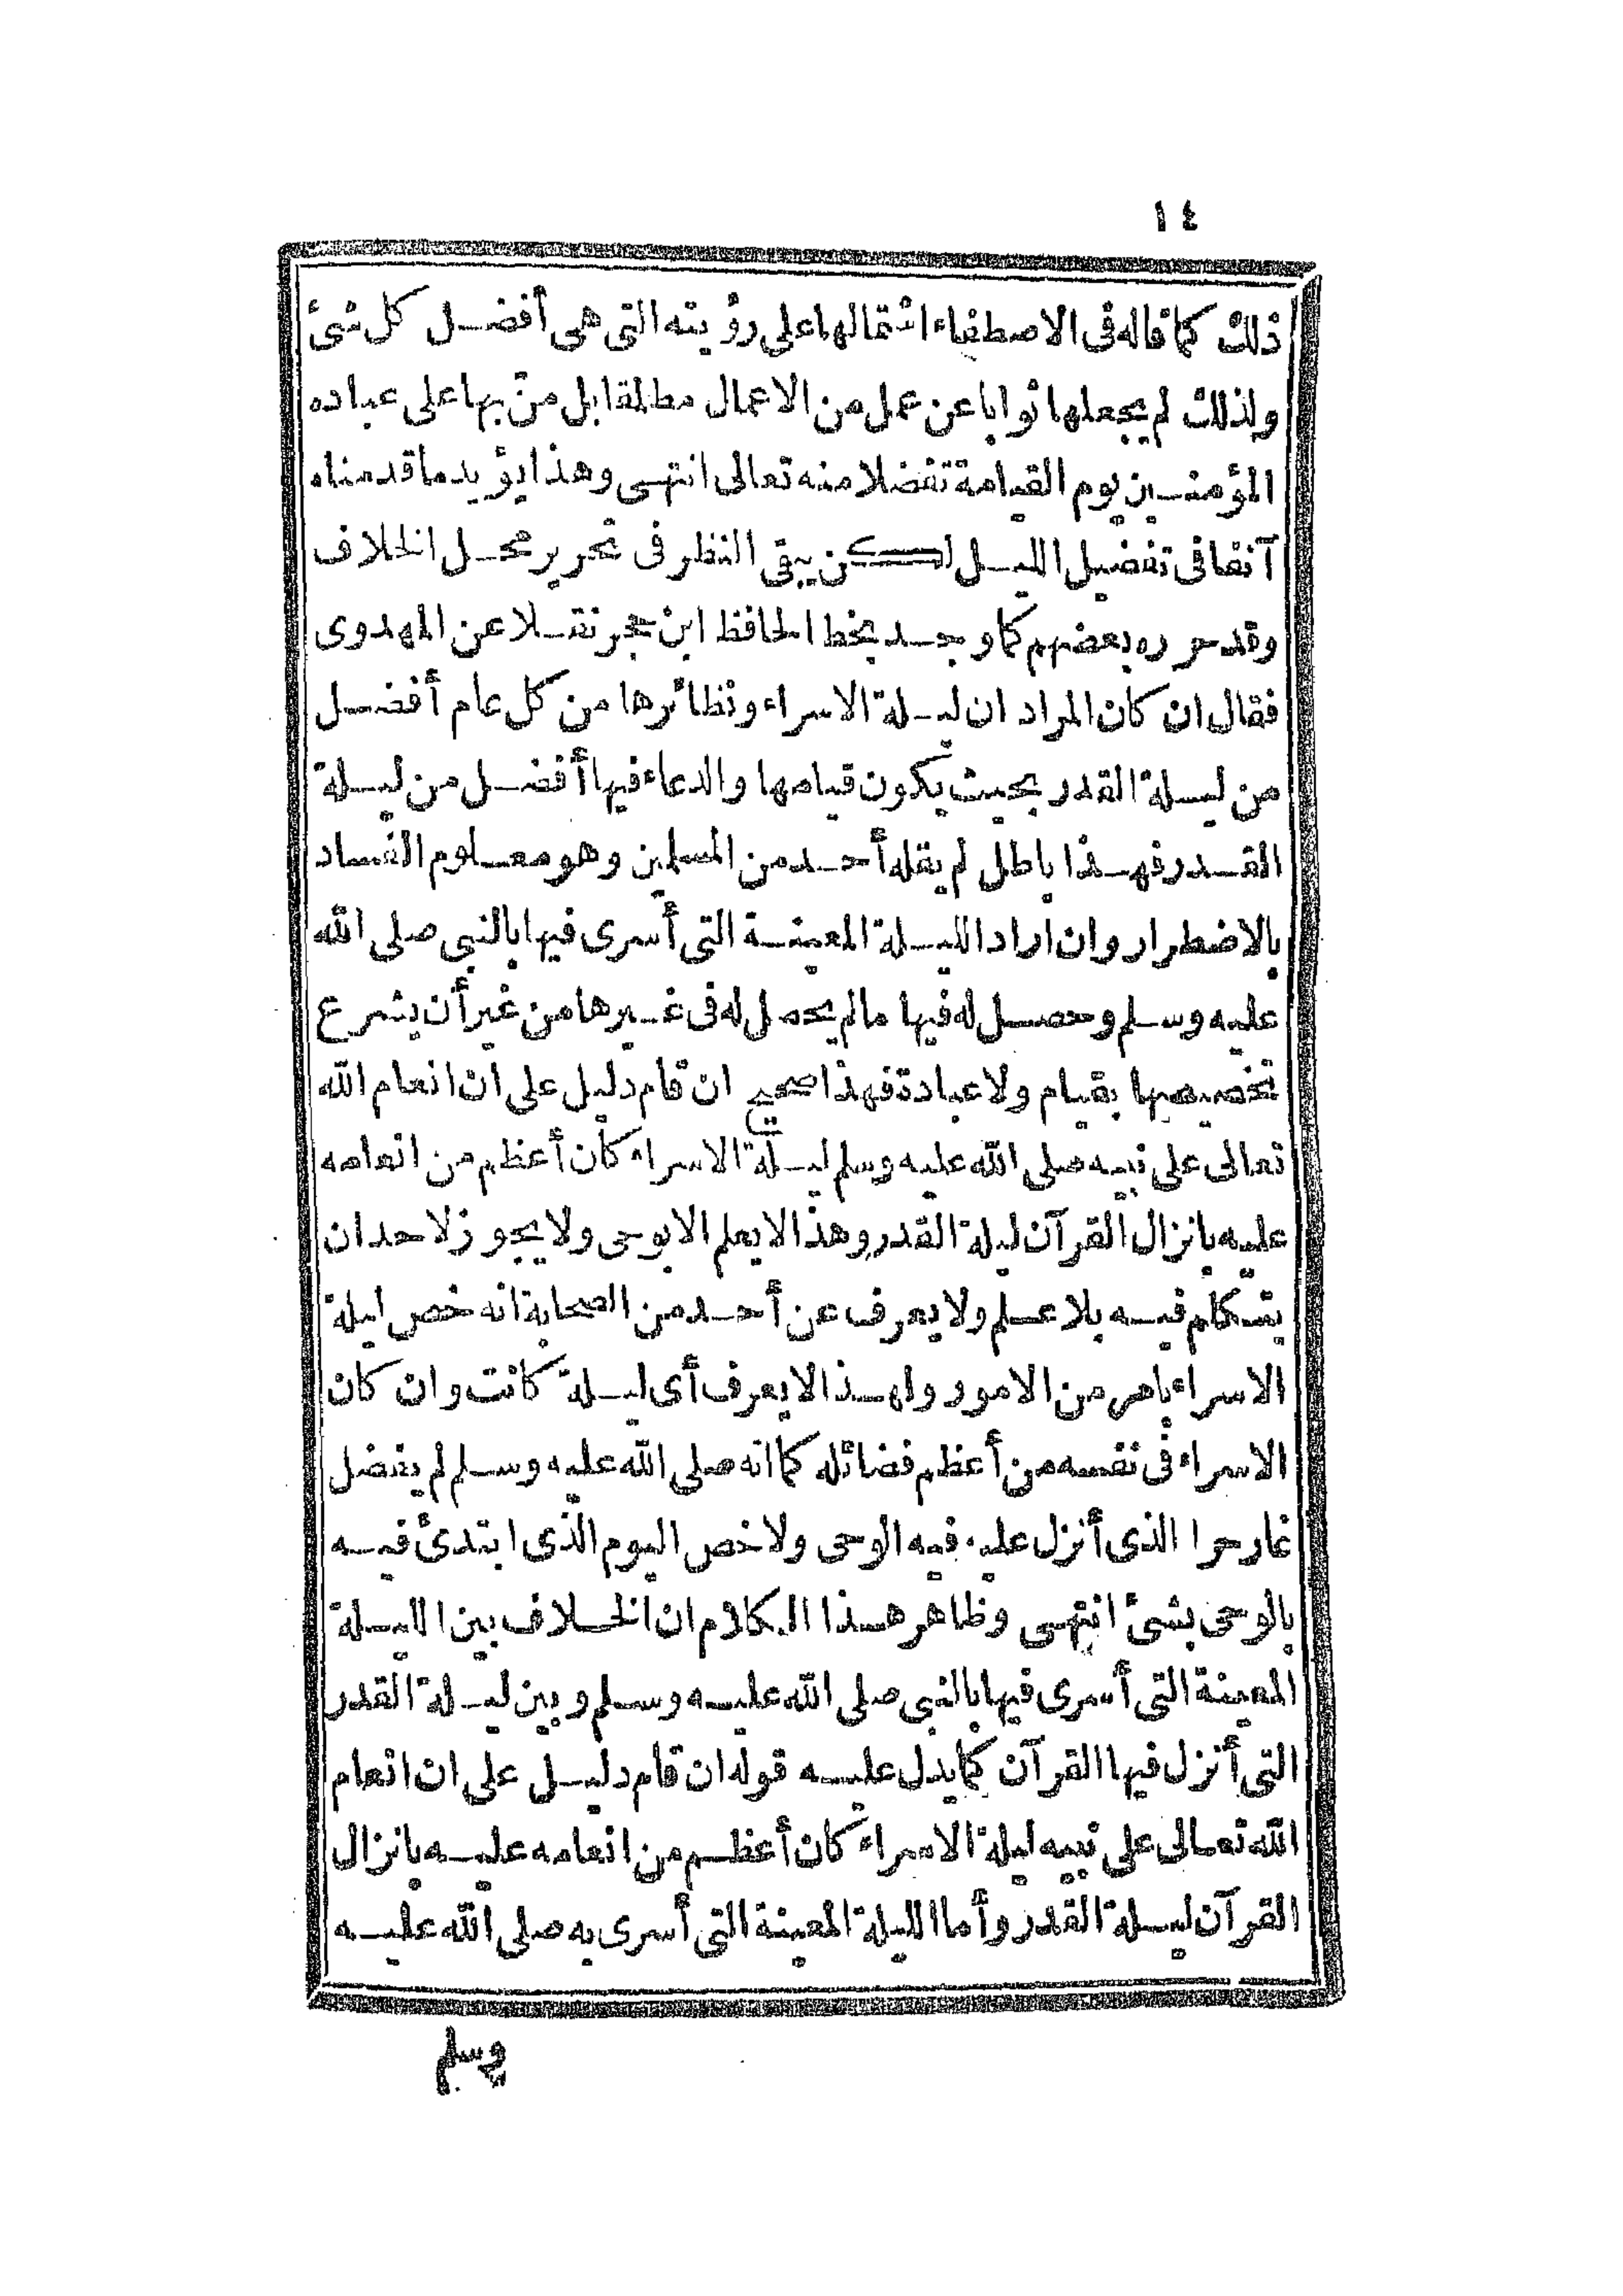 ١٤
ذلك كما قاله فى الاصطفاء اشتمالها على رؤيته التى هى أفضل كل شئ
ولذلك لم يجعلها ثوابا عن عمل من الاعمال مطلقا بل منّ بها على عباده
المؤمنين يوم القيامة تفضلا منه تعالى انتهى وهذا يؤيد ما قدمناه
آنفا فى تفضيل الليل لكن يبقى النظر فى تحرير محل الخلاف
وقد حرره بعضهم كما وجد بخط الحافظ ابن حجر نقلا عن المهدوى
فقال ان كان المراد ان ليلة الاسراء ونظائرها من كل عام أفضل
من ليلة القدر بحيث يكون قيامها والدعاء فيها أفضل من ليلة
القدر فهذا باطل لم يقله أحد من المسلمين وهو معلوم الفساد
بالاضطرار وان اراد الليلة المعينة التى أسرى فيها بالنبى صلى الله
عليه وسلم وحصل له فيها ما لم يحصل له فى غيرها من غير أن يشرع
تخصيصها بقيام ولا عبادة فهذا صحيح ان قام دليل على ان انعام الله
تعالى على نبيه صلى الله عليه وسلم ليلة الاسراء كان أعظم من انعامه
عليه بانزال القرآن ليلة القدر وهذا لا يعلم الا بوحى ولا يجوز لاحد ان
يتكلم فيه بلا علم ولا يعرف عن أحد من الصحابة انه خص ليلة
الاسراء بامر من الامور ولهذا لا يعرف أى ليلة كانت وان كان
الاسراء فى نفسه من أعظم فضائله كما انه صلى الله عليه وسلم لم يفضل
غار حرا الذى أنزل عليه فيه الوحى ولا خص اليوم الذى ابتدئ فيه
بالوحى بشئ انتهى وظاهر هذا الكلام ان الخلاف بين الليلة
المعينة التى أسرى فيها بالنبى صلى الله عليه وسلم وبين ليلة القدر
التى أنزل فيها القرآن كما يدل عليه قوله ان قام دليل على ان انعام
الله تعالى على نبيه ليلة الاسراء كان أعظم من انعامه عليه بانزال
القرآن ليلة القدر وأما الليلة المعينة التى أسرى به صلى الله عليه
وسلم